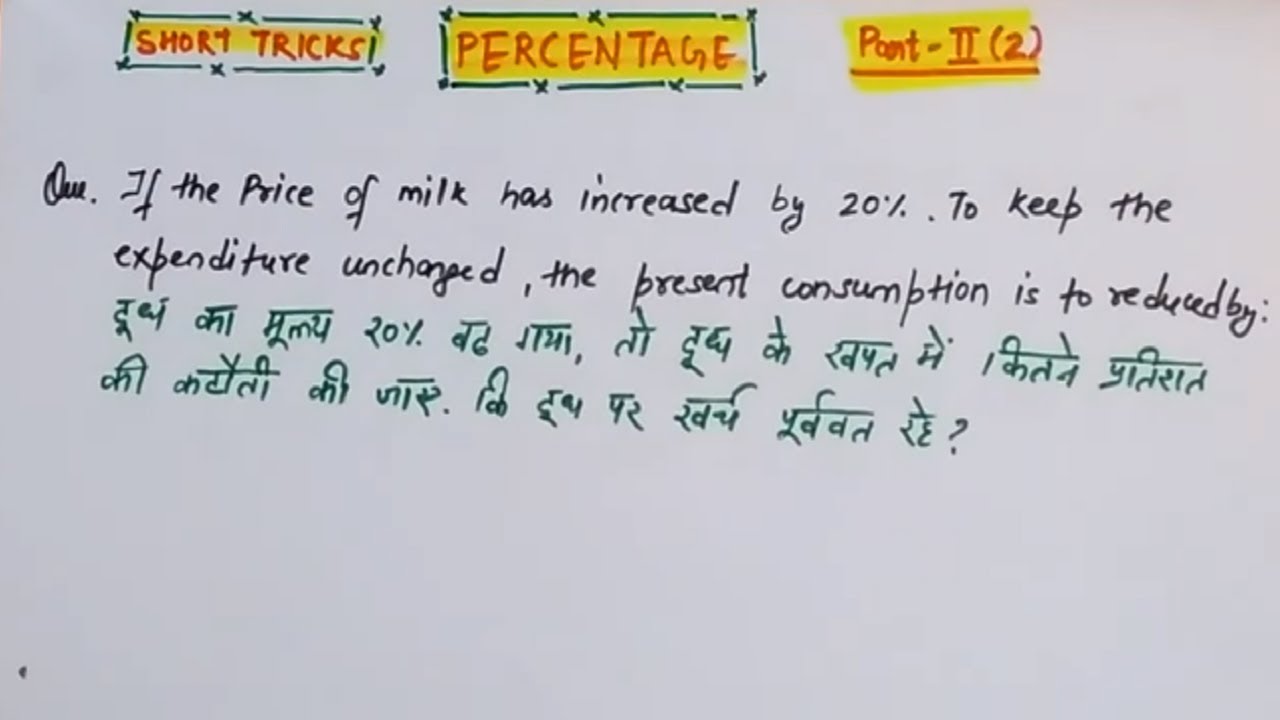 SHORT TRICKS PERCENTAGE Part-II (2)
Que. If the Price of milk has increased by 20%. To keep the
expenditure unchanged, the present consumption is to reduced by:
दूध का मूल्य 20% बढ गया, तो दूध के खपत में कितने प्रतिशत
की कटौती की जाए. कि दूध पर खर्च पूर्ववत रहे?